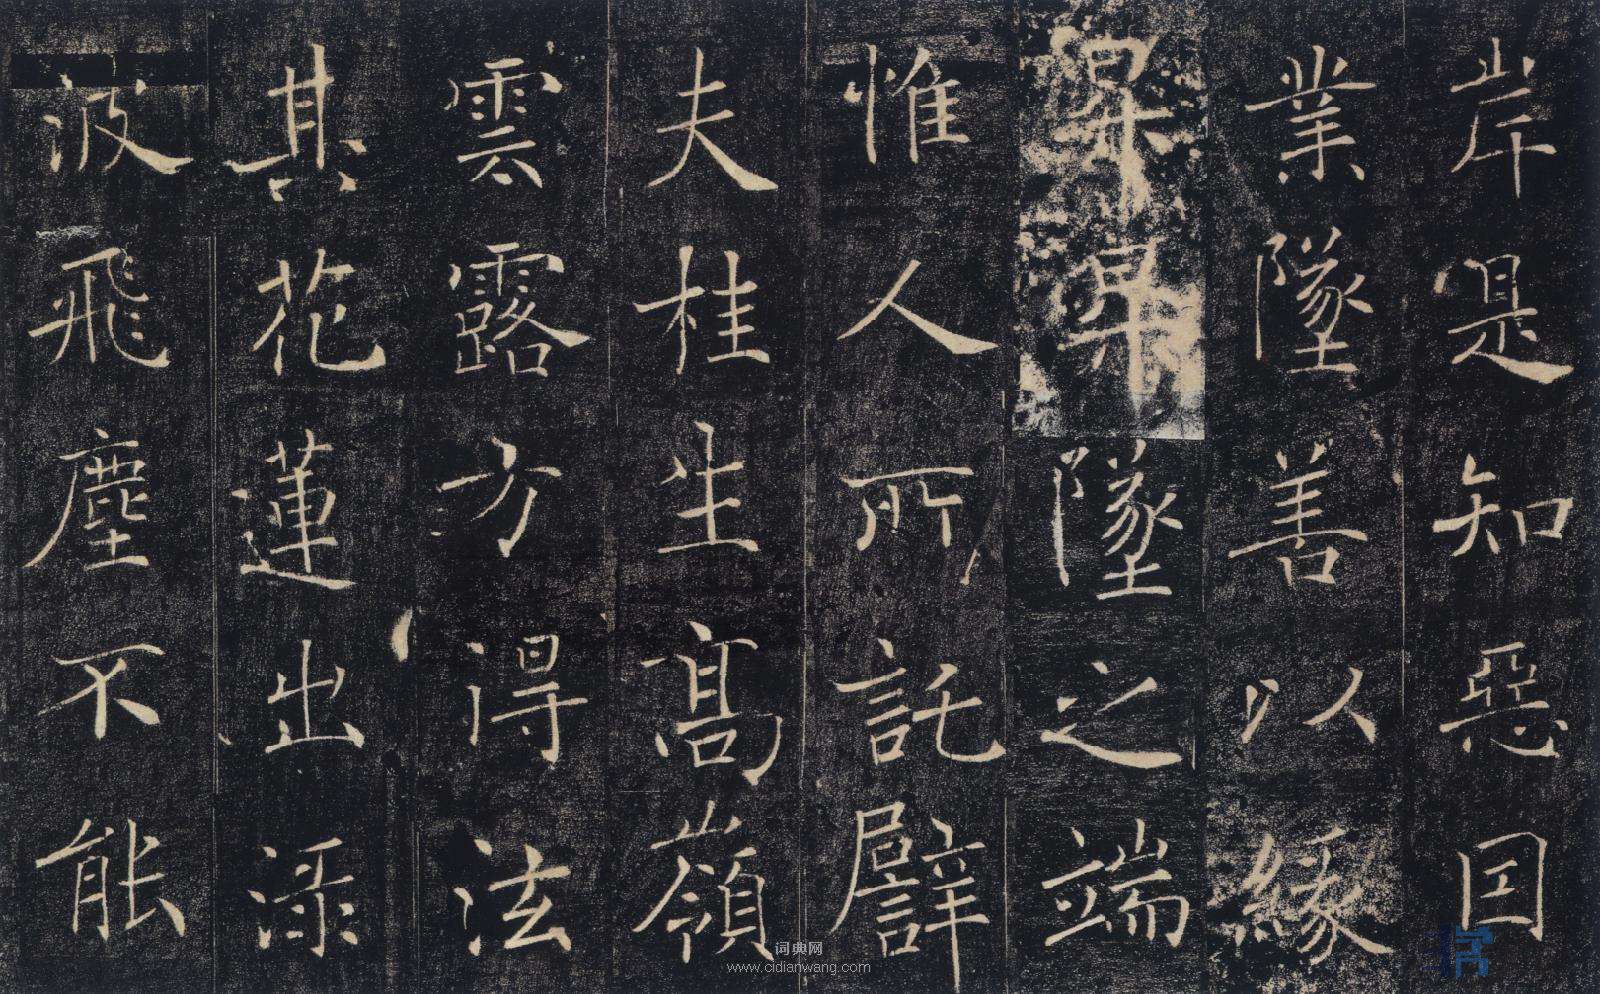 岸是知惡因
業墜善以緣
昇昇墜之端
惟人所託譬
夫桂生高嶺
雲露方得泫
其花蓮出淥
波飛塵不能
词典网
www.cidianwang.com